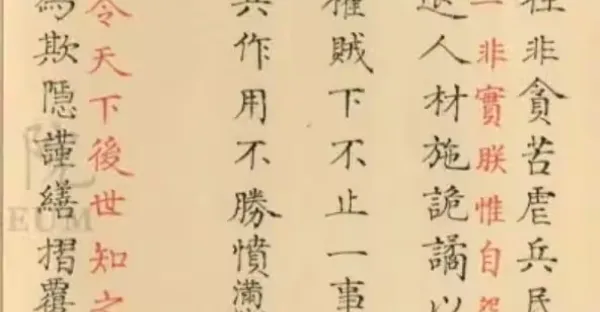 非貪苦虐兵民
一非實朕惟自
人材施詭譎以
賊下不止一事
作用不勝憤滿
令天下後世知之
欺隱謹繕摺覆
院
EUM